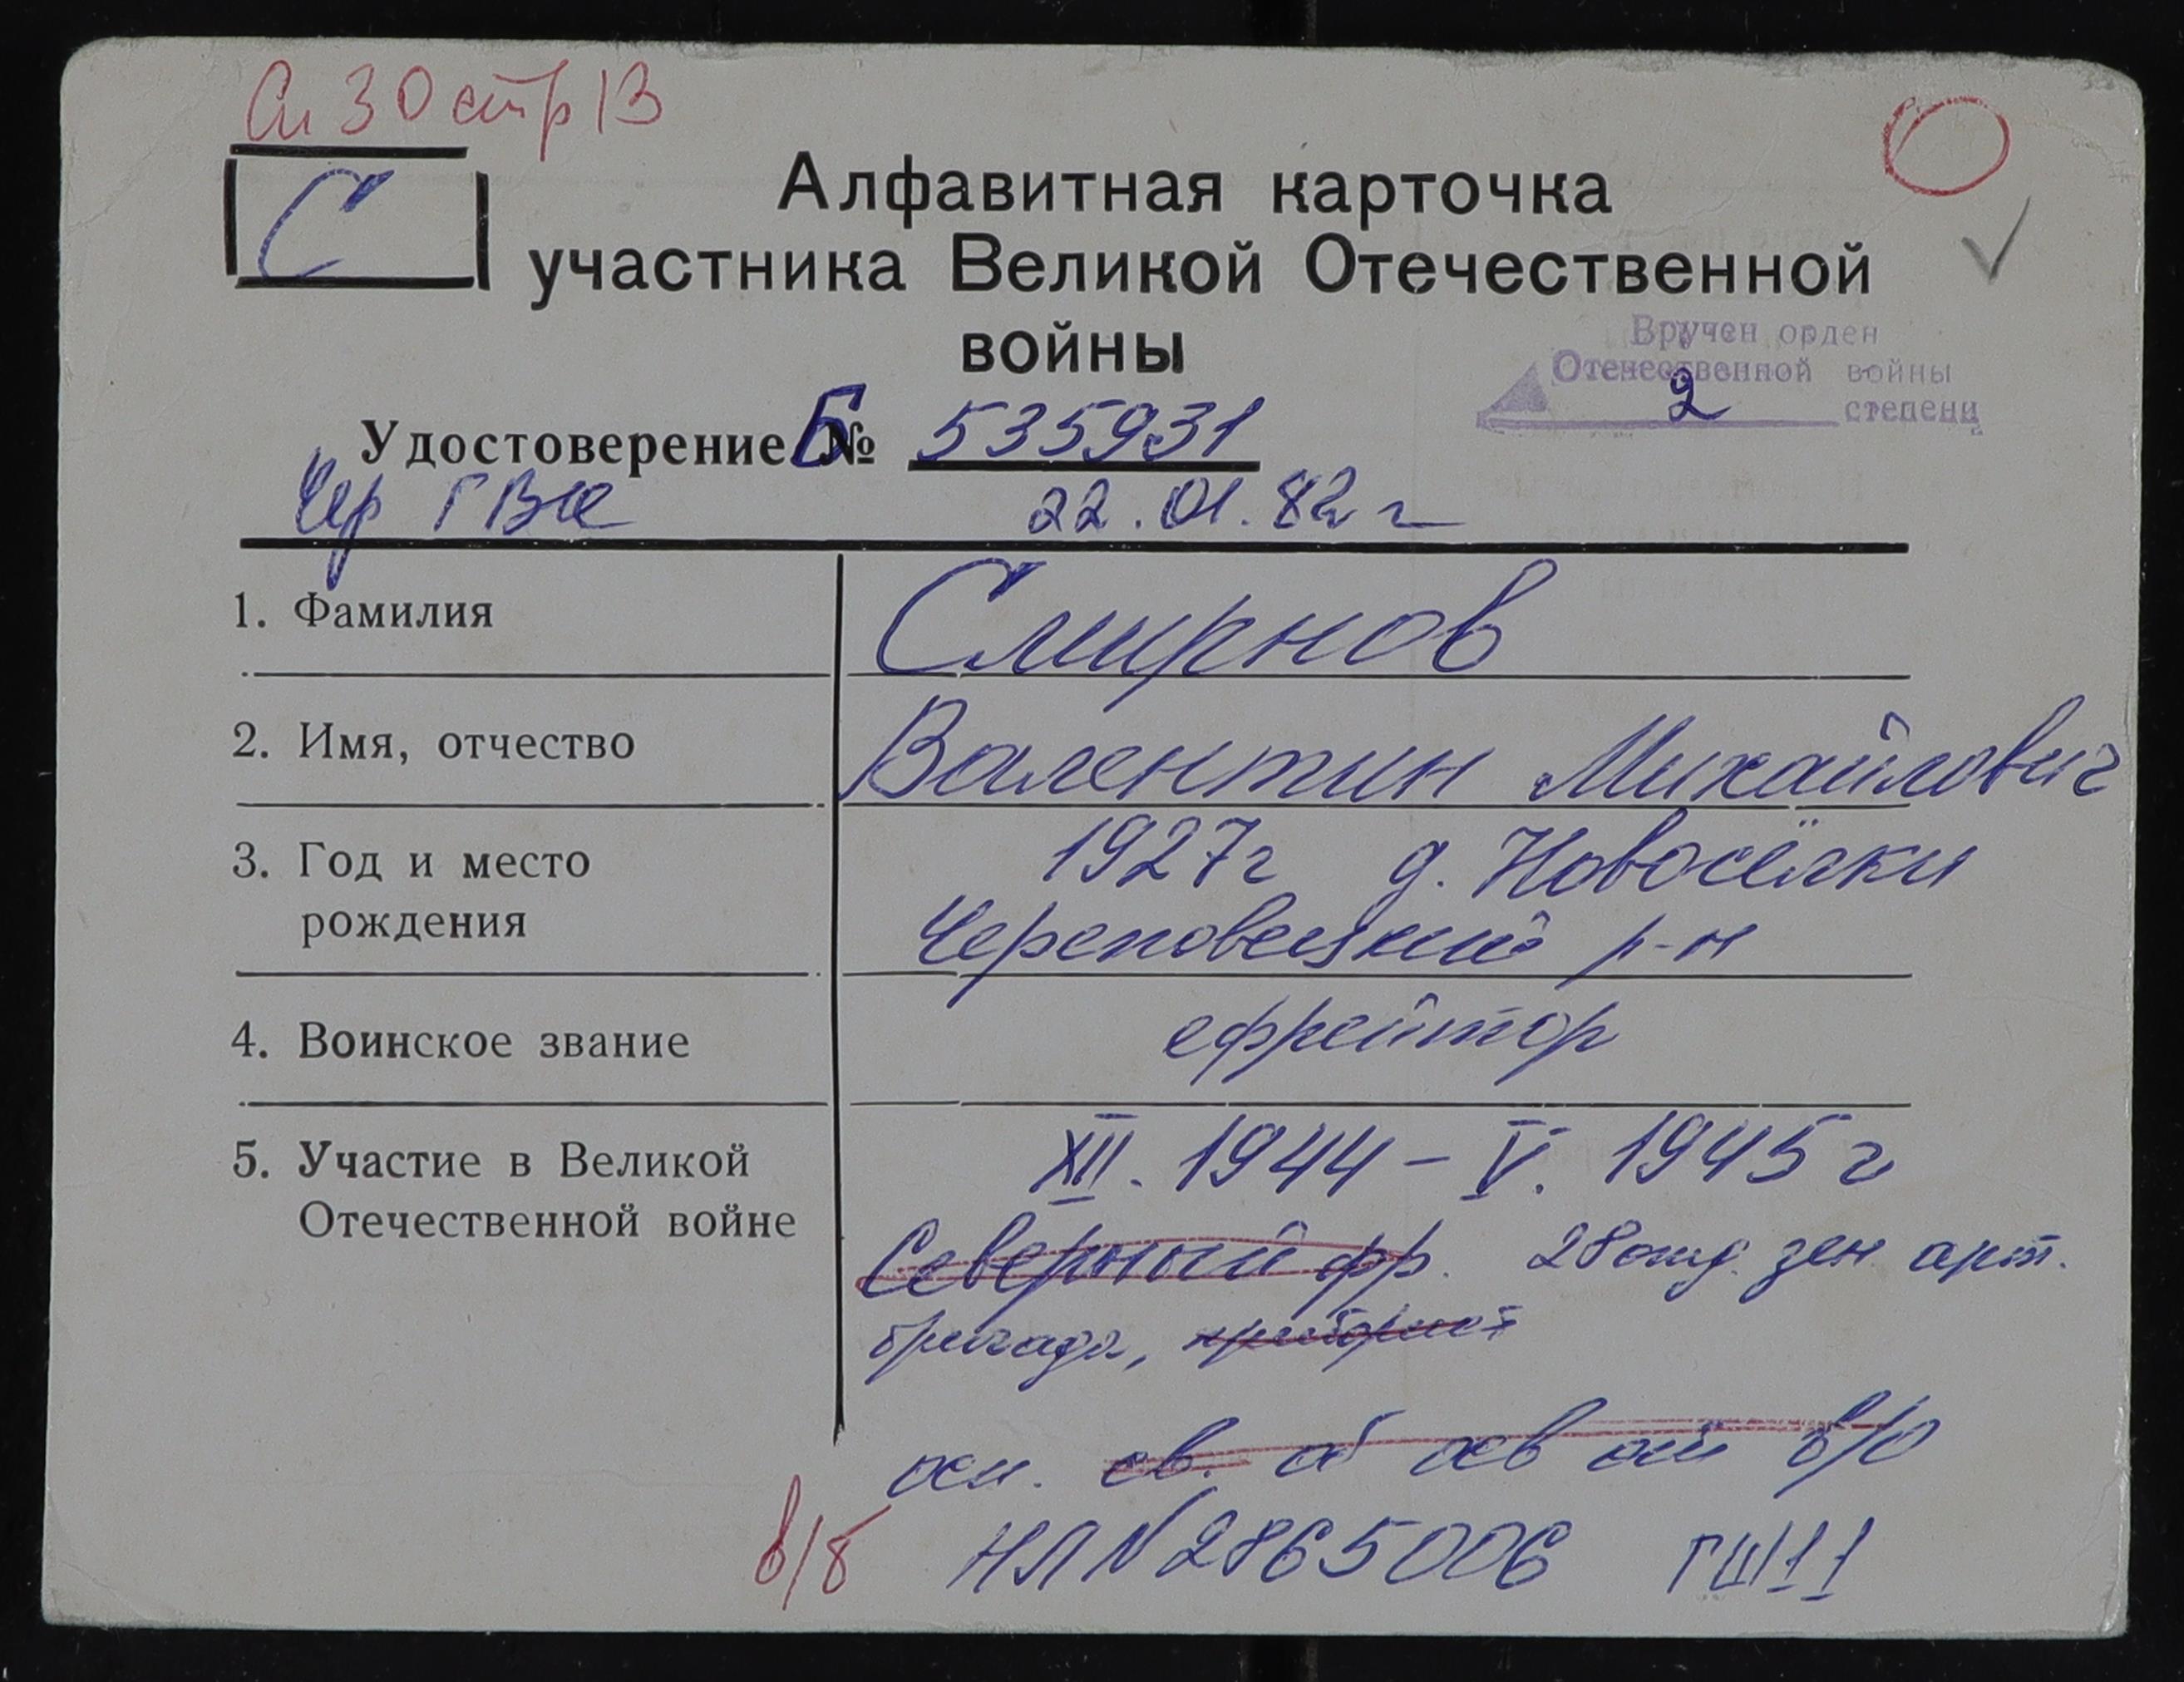 Сп 30 стр 13
С
Алфавитная карточка
участника Великой Отечественной
войны
Вручен орден
Отечественной войны
2 степени
Удостоверение Б № 535931
Чер ГВК 22.01.82 г
1. Фамилия Смирнов
2. Имя, отчество Валентин Михайлович
3. Год и место 1927г д. Новосёлки
рождения Череповецкий р-н
4. Воинское звание ефрейтор
5. Участие в Великой XII. 1944 - V. 1945 г
Отечественной войне Северный фр. 28 отд. зен арт.
бригада, приборист
осн. св. об осв от в/о
в/б НЛ № 2865006 ГШ 11